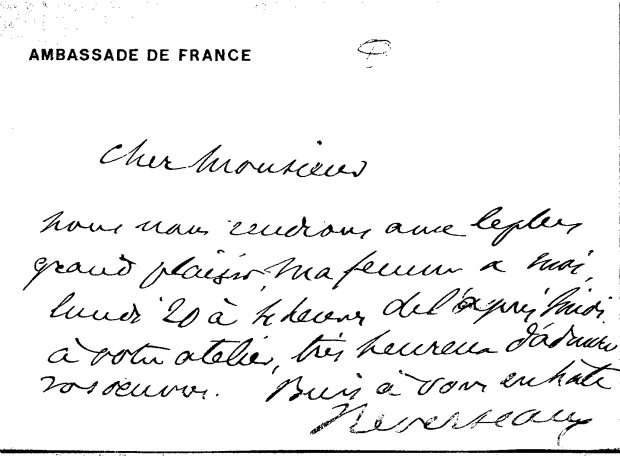 AMBASSADE DE FRANCE
Cher Monsieur
nous nous rendrons avec le plus
grand plaisir, ma femme & moi,
lundi 20 à 4 heures de l'après midi
à votre atelier, très heureux d'admirer
vos oeuvres. Bien à vous en hâte
Reverseaux